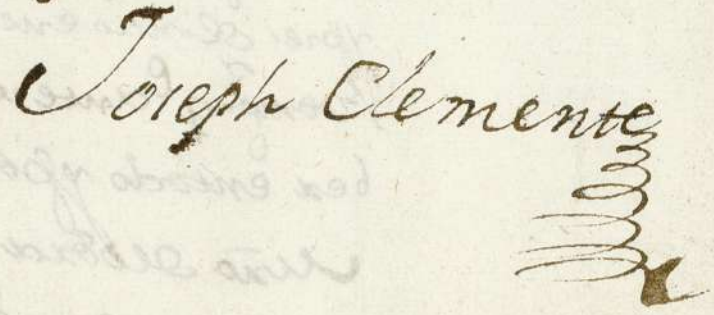 Joseph Clemente